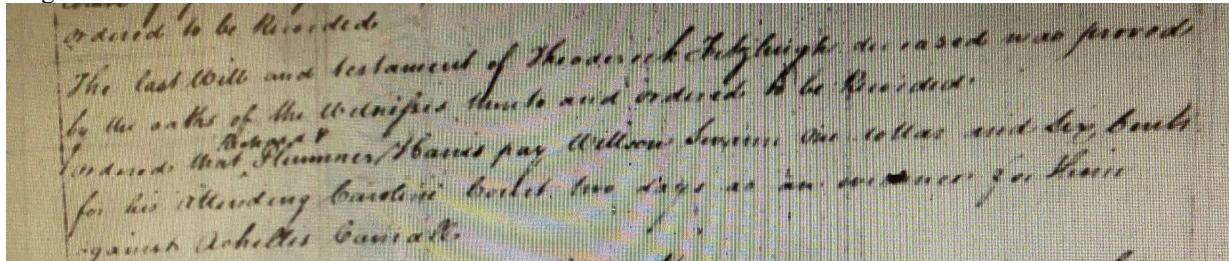 ordered to be Recorded
The last Will and testament of Theoderick Fitzhugh deceased was proved
by the oaths of the Witnesses thereto and ordered to be Recorded
Ordered that Plummer Harris pay Willson one dollar and six Cents
for his attending Caroline Court two days as an for them
against Achilles